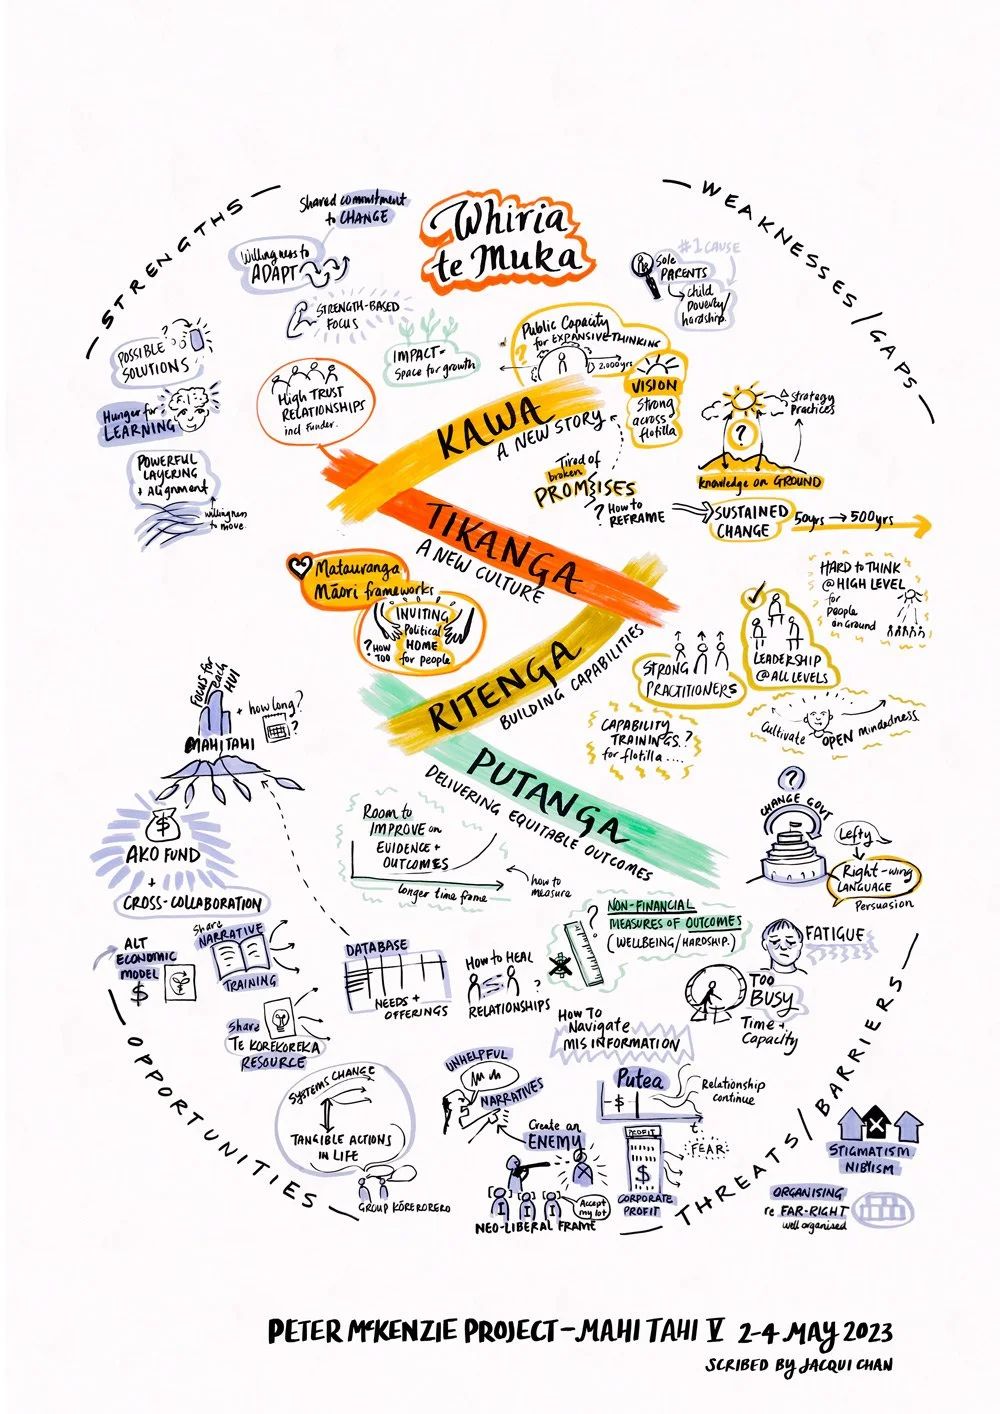 Whiria
te Muka
STRENGTHS
Shared commitment
to CHANGE
Willingness to
ADAPT
STRENGTH-BASED
FOCUS
IMPACT =
Space for growth
POSSIBLE
SOLUTIONS
Hunger for
LEARNING
POWERFUL
LAYERING
+ Alignment
willingness
to move
HIGH TRUST
RELATIONSHIPS
incl Funder.
WEAKNESSES/GAPS
#1 CAUSE
Sole
PARENTS
child
poverty/
hardship
Public Capacity
for EXPANSIVE THINKING
?
2,000yrs
VISION
Strong
across
flotilla
strategy
Practices
?
knowledge on GROUND
KAWA
A NEW STORY
Tired of
broken
PROMISES
? How to
REFRAME
SUSTAINED
CHANGE
50yrs → 500yrs
TIKANGA
A NEW CULTURE
Matauranga
Māori frameworks
INVITING
Political
HOME
for people
? HOW
TOO
HARD to THINK
@ HIGH LEVEL
for
people
on Ground
LEADERSHIP
@ ALL LEVELS
STRONG
PRACTITIONERS
RITENGA
BUILDING CAPABILITIES
CAPABILITY
TRAININGS?
for flotilla ....
Cultivate OPEN mindedness
PUTANGA
DELIVERING EQUITABLE OUTCOMES
FOCUS for
each
HUI
+ how long?
?
MAHI TAHI
$
AKO FUND
+
CROSS-COLLABORATION
Room to
IMPROVE on
EVIDENCE +
OUTCOMES
longer time frame
how to
measure
?
CHANGE GOVT
Lefty
Right-wing
LANGUAGE
Persuasion
?
$
NON-FINANCIAL
MEASURES OF OUTCOMES
(WELLBEING/HARDSHIP.)
FATIGUE
TOO
BUSY
Time +
Capacity
ALT
ECONOMIC
MODEL
$
Share
NARRATIVE
TRAINING
Share
TE KOREKOREKA
RESOURCE
DATABASE
NEEDS +
OFFERINGS
How to HEAL
?
RELATIONSHIPS
How To
Navigate
MISINFORMATION
OPPORTUNITIES
SYSTEMS CHANGE
TANGIBLE ACTIONS
IN LIFE
GROUP KŌRERORERO
UNHELPFUL
NARRATIVES
Create an
ENEMY
I I I
Accept
my lot
NEO-LIBERAL FRAME
Putea
-$
t.
Relationship
continue
PROFIT
$
FEAR
CORPORATE
PROFIT
THREATS/BARRIERS
STIGMATISM
NIBYISM
ORGANISING
re FAR-RIGHT
well organised
PETER McKENZIE PROJECT - MAHI TAHI V 2-4 MAY 2023
SCRIBED BY JACQUI CHAN